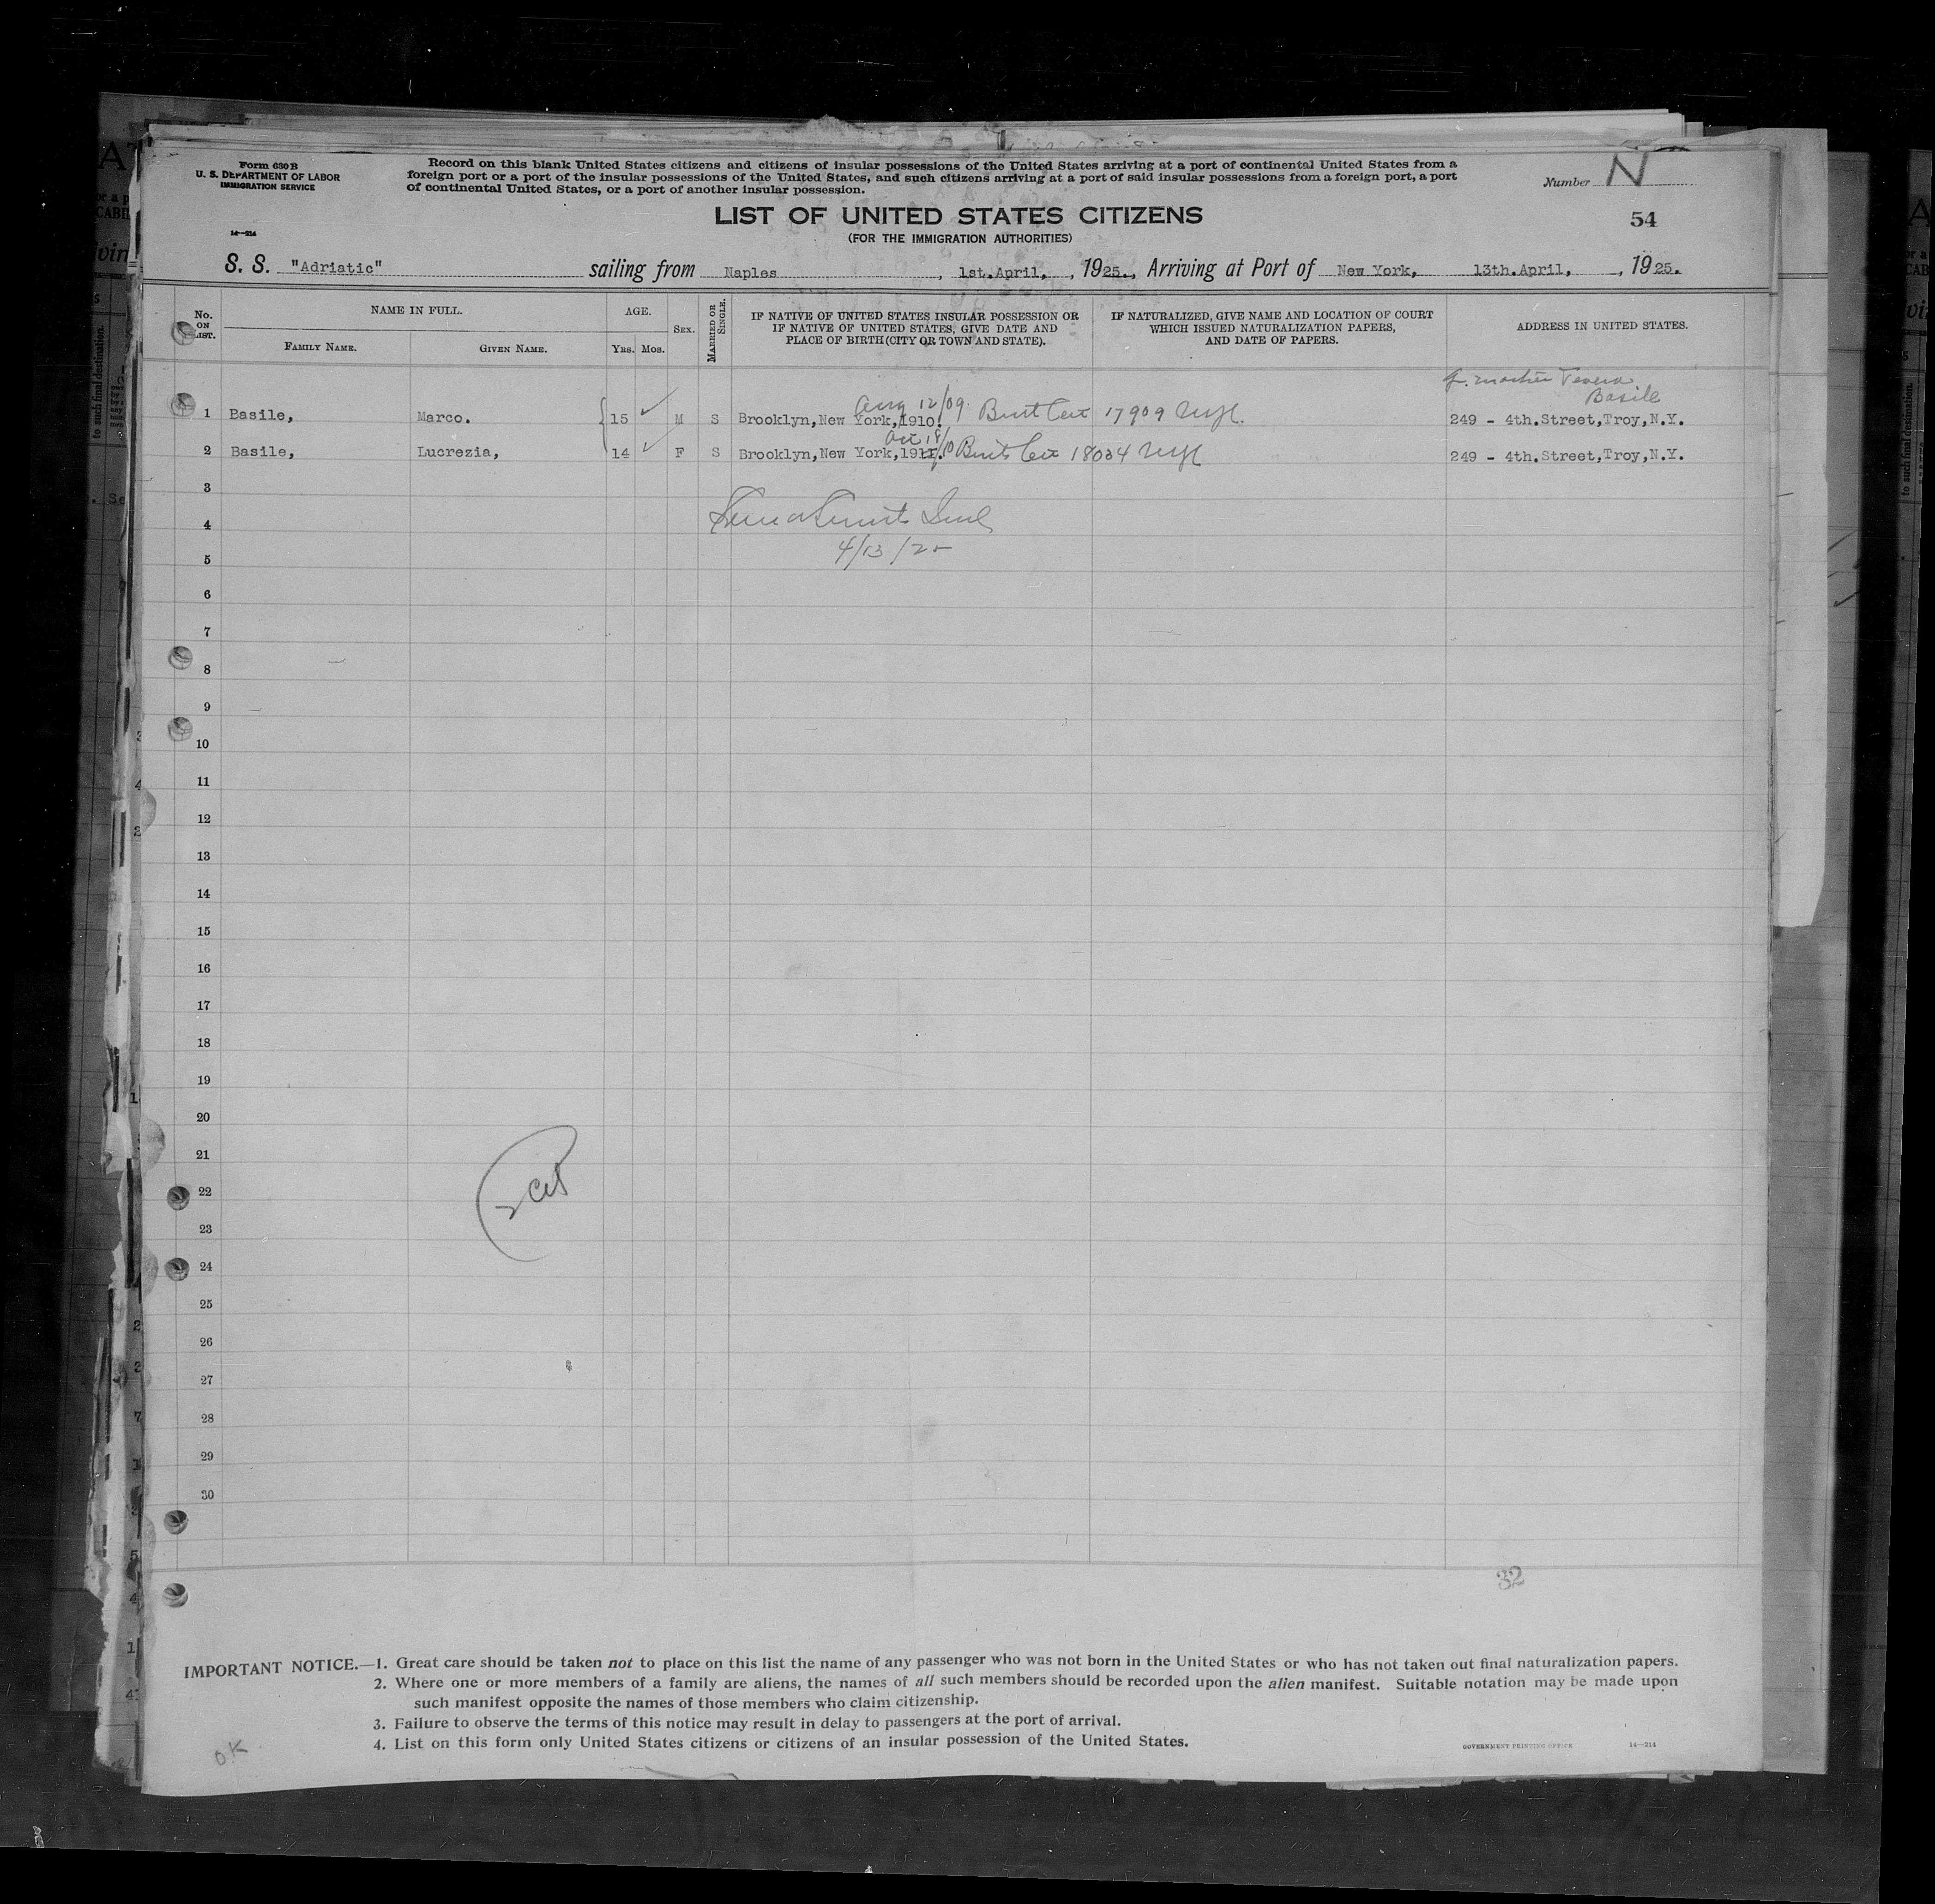 Form 630 B
U. S. DEPARTMENT OF LABOR
IMMIGRATION SERVICE
14—214
Record on this blank United States citizens and citizens of insular possessions of the United States arriving at a port of continental United States from a
foreign port or a port of the insular possessions of the United States, and such citizens arriving at a port of said insular possessions from a foreign port, a port
of continental United States, or a port of another insular possession.
Number N
54
LIST OF UNITED STATES CITIZENS
(FOR THE IMMIGRATION AUTHORITIES)
S. S. "Adriatic" sailing from Naples, 1st.April, , 1925., Arriving at Port of New York, 13th.April, , 1925.
No. ON LIST.
NAME IN FULL.
FAMILY NAME. GIVEN NAME.
AGE.
Yrs. Mos.
SEX.
MARRIED OR SINGLE.
IF NATIVE OF UNITED STATES INSULAR POSSESSION OR
IF NATIVE OF UNITED STATES, GIVE DATE AND
PLACE OF BIRTH (CITY OR TOWN AND STATE).
IF NATURALIZED, GIVE NAME AND LOCATION OF COURT
WHICH ISSUED NATURALIZATION PAPERS,
AND DATE OF PAPERS.
ADDRESS IN UNITED STATES.
Basile
Aug 12/09
1 Basile, Marco. 15 M S Brooklyn,New York,1910. 17909 249 - 4th.Street,Troy,N.Y.
2 Basile, Lucrezia, 14 F S Brooklyn,New York,1911. 249 - 4th.Street,Troy,N.Y.
3
4
4/13/25
5
6
7
8
9
10
11
12
13
14
15
16
17
18
19
20
21
22
23
24
25
26
27
28
29
30
32
IMPORTANT NOTICE.—1. Great care should be taken not to place on this list the name of any passenger who was not born in the United States or who has not taken out final naturalization papers.
2. Where one or more members of a family are aliens, the names of all such members should be recorded upon the alien manifest. Suitable notation may be made upon
such manifest opposite the names of those members who claim citizenship.
3. Failure to observe the terms of this notice may result in delay to passengers at the port of arrival.
4. List on this form only United States citizens or citizens of an insular possession of the United States.
GOVERNMENT PRINTING OFFICE 14—214
OK